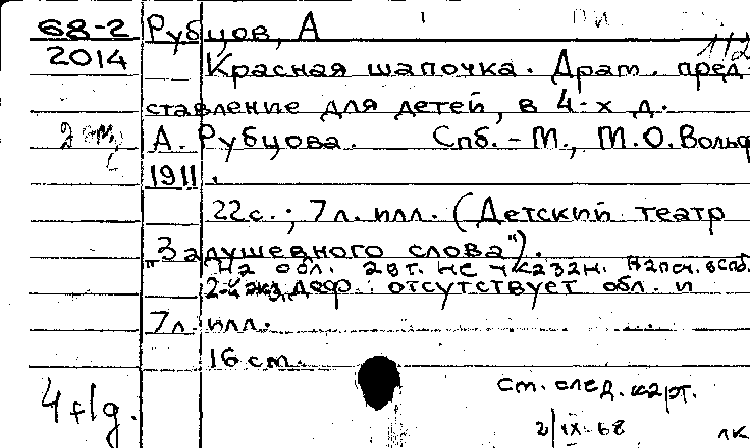 68-2 Рубцов, А
1/2
2014 Красная шапочка. Драм. пред-
ставление для детей, в 4-х д.
А. Рубцова. Спб.-М., М.О. Вольф
1911.
22с.; 7л. илл. (Детский театр
"Задушевного слова").
На обл. авт. не указан. Напеч. в спб.
2-й экз. деф.: отсутствует обл. и
7л. илл.
16 см.
см. след. карт.
2/IX-68 лк